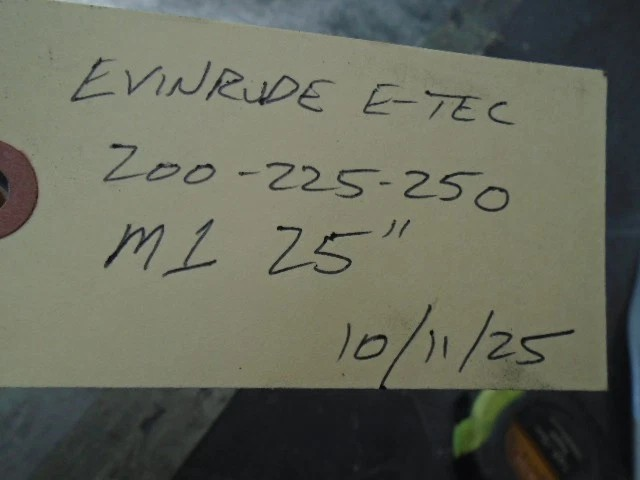 EVINRUDE E-TEC
200-225-250
M1 25"
10/11/25